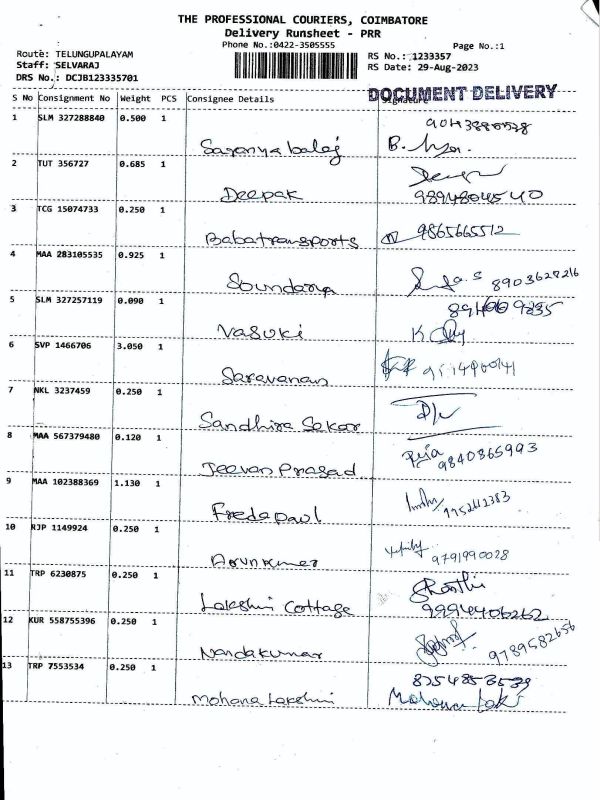 THE PROFESSIONAL COURIERS, COIMBATORE
Delivery Runsheet - PRR
Phone No.:0422-3505555 Page No.:1
Route: TELUNGUPALAYAM RS No.: 1233357
Staff: SELVARAJ RS Date: 29-Aug-2023
DRS No.: DCJB123335701
DOCUMENT DELIVERY
S No Consignment No Weight PCS Consignee Details Signature
1 SLM 327288840 0.500 1
Saranya balaj B.
2 TUT 356727 0.685 1
Deepak 9894804540
3 TCG 15074733 0.250 1
Babatransports 9865665512
4 MAA 283105535 0.925 1
Soundarya 8903628216
5 SLM 327257119 0.090 1
Vasuki K.
6 SVP 1466706 3.050 1
Saravanan
7 NKL 3237459 0.250 1
Sandhira Sekar
8 MAA 567379480 0.120 1
Jeevan Prasad Pria 9840365993
9 MAA 102388369 1.130 1
Freda paul
10 RJP 1149924 0.250 1
Arunkumar 9791990028
11 TRP 6230875 0.250 1
Lakshmi Cottage Shanthi 9994406262
12 KUR 558755396 0.250 1
Nandakumar 9789582656
13 TRP 7553534 0.250 1
Mohana Lakshmi Mohana